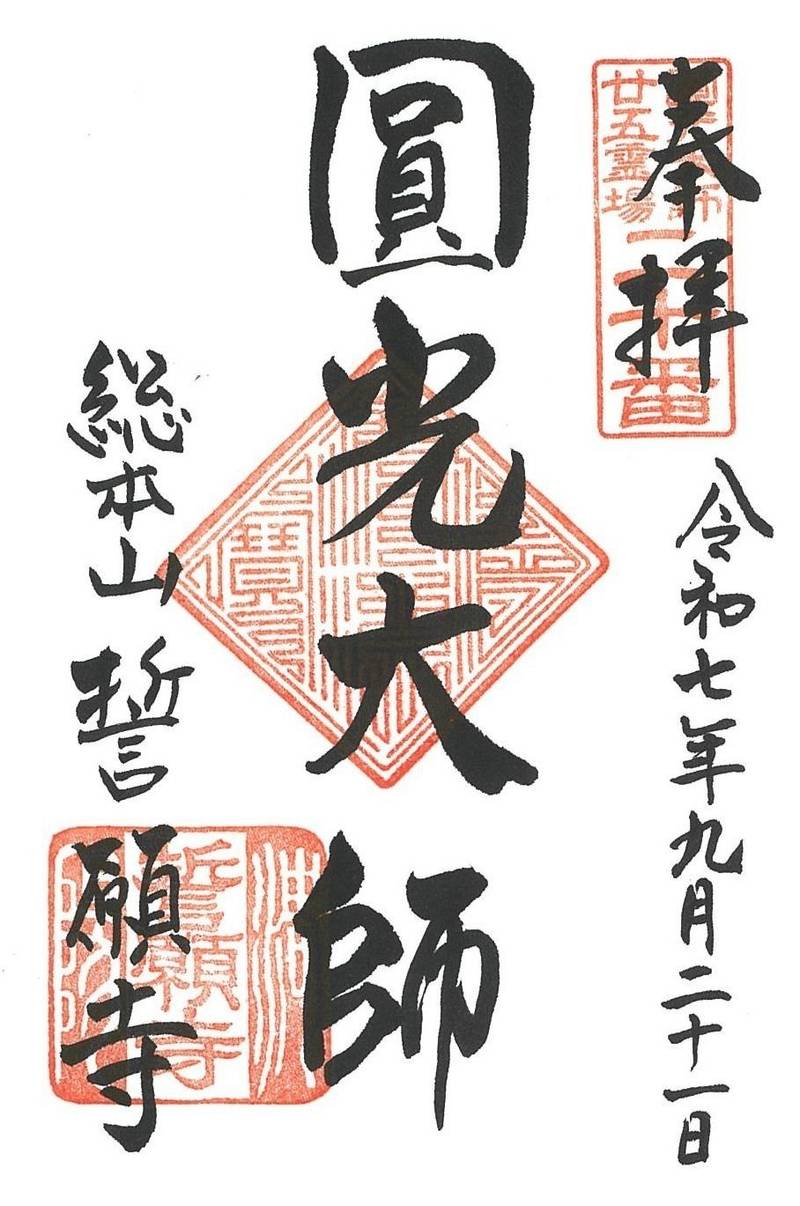 奉拝
廿五霊場
二十番
令和七年九月二十一日
圓光大師
総本山誓願寺
誓願寺